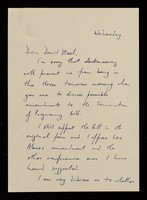 Wednesday
Dear David Steel,
I'm sorry that electioneering
will prevent me from being in
the House tomorrow morning when
you are to discuss possible
amendments to the Termination
of Pregnancy Bill.
I still support the bill in its
original form and I oppose
House amendment and the
other conferences was I have
heard suggested.
I am very dubious as to whether